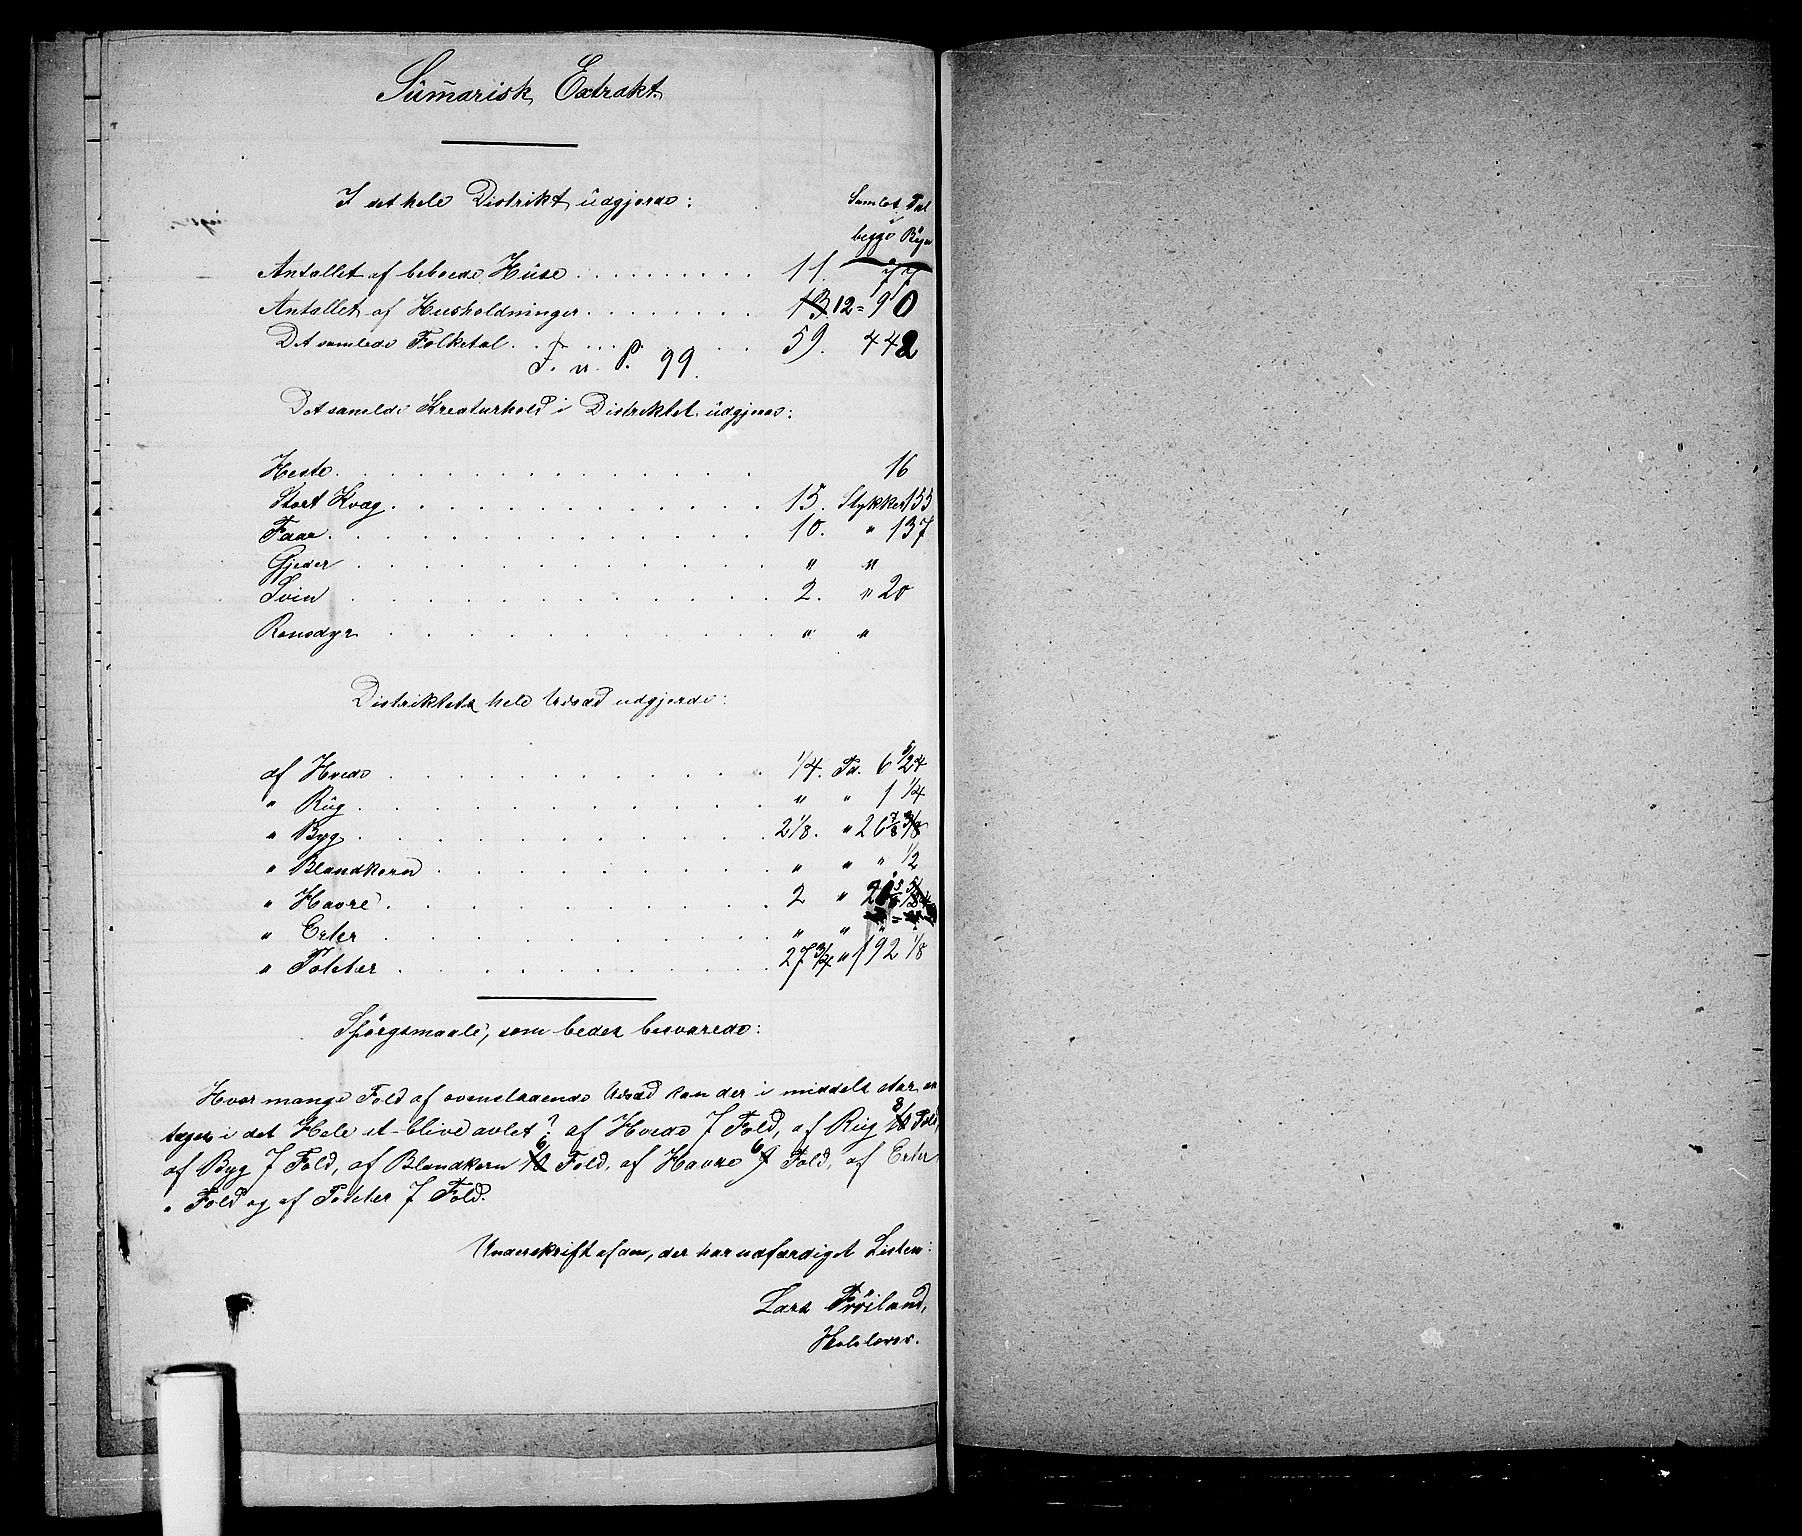 Summarisk Extrakt.
I det hele Distrikt udgjorde: Samlet Tal
i
begge Rg
Antallet af beboede Huse . . . . . . . . . . 11. 77
Antallet af Husholdninger . . . . . . . . 13 12 = 90
Det samlede Folketal . . . . . . . . 59. 442
T. n. P. 99.
Det samlede Kreaturhold i Distriktet udgjorde:
Heste . . . . . . . . . . . 16
Stort Kvæg . . . . . . . . . . 15. Stykker 155
Faar . . . . . . . . . . . . 10. " 137
Gjeder . . . . . . . . . . . " "
Svin . . . . . . . . . . . 2. " 20
Rensdyr . . . . . . . . . . " "
Distriktets hele Udsæd udgjorde:
af Hvede . . . . . . . . . . 1/4. Td. 6 5/24
" Rug . . . . . . . . . . . " " 1 1/4
" Byg . . . . . . . . . . . 2 1/8. " 26 7/8 3/8
" Blandkorn . . . . . . . . . " " " 1/2
" Havre . . . . . . . . . . 2 "
" Erter . . . . . . . . . . " " "
" Poteter . . . . . . . . . . 27 3/4 " 192 1/8
Spörgsmaale, som bedes besvarede:
Hvor mange Fold af ovenstaaende Udsæd kan der i middels Aar an
tages i det Hele at blive avlet? af Hvede 7 Fold, af Rug 10 8 Fold,
af Byg 7 Fold, af Blandkorn 10 6 Fold, af Havre 9 6 Fold, af Erter
" Fold og af Poteter 7 Fold.
Underskrift af den, der har udfærdiget Listen:
Lars Fröiland,